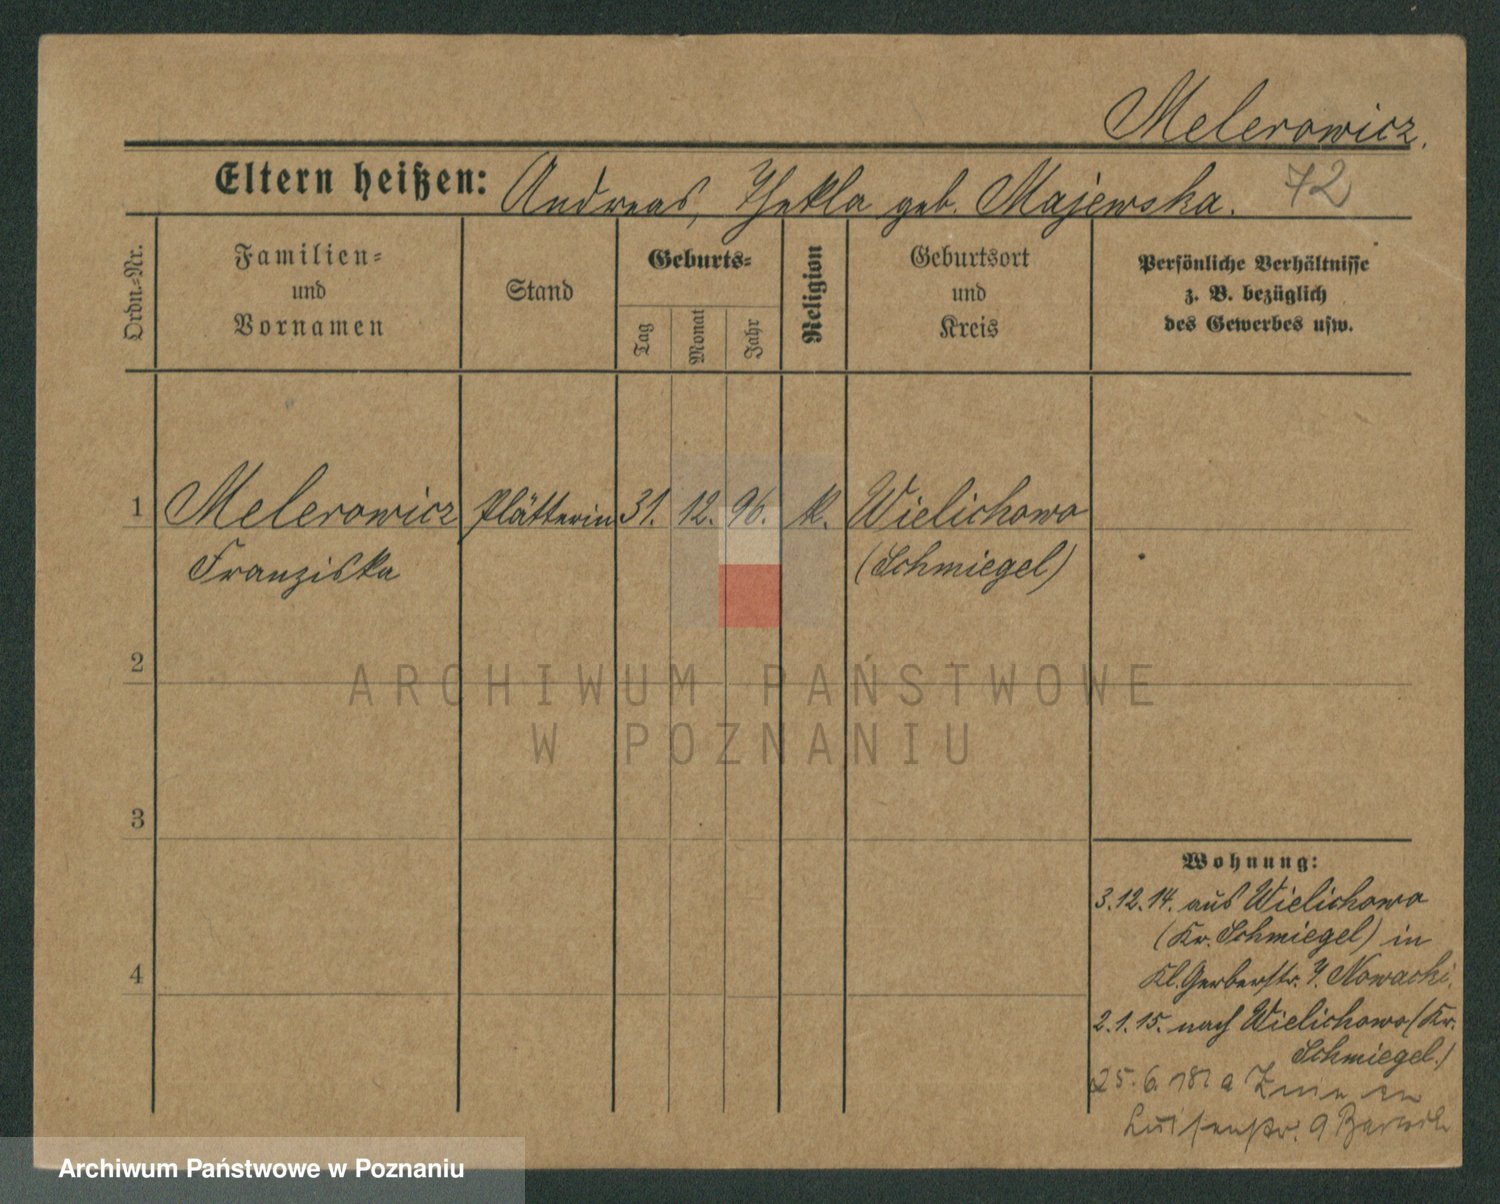 Melerowicz.
Eltern heißen: Andreas, Thekla geb. Majewska. 72
Ordn.-Nr.
Familien-
und
Vornamen
Stand
Geburts-
Tag
Monat
Jahr
Religion
Geburtsort
und
Kreis
Persönliche Verhältnisse
z. B. bezüglich
des Gewerbes usw.
1 Melerowicz Plätterin 31. 12. 96. k. Wielichowo
Franziska (Schmiegel)
2
ARCHIWUM PAŃSTWOWE
W POZNANIU
3
Wohnung:
3.12.14. aus Wielichowo
(Kr. Schmiegel) in
4
Kl. Gerberstr. 7. Nowacki.
2.1.15. nach Wielichowo (Kr.
Schmiegel.)
25.6.18
Luisenstr. 9
Archiwum Państwowe w Poznaniu